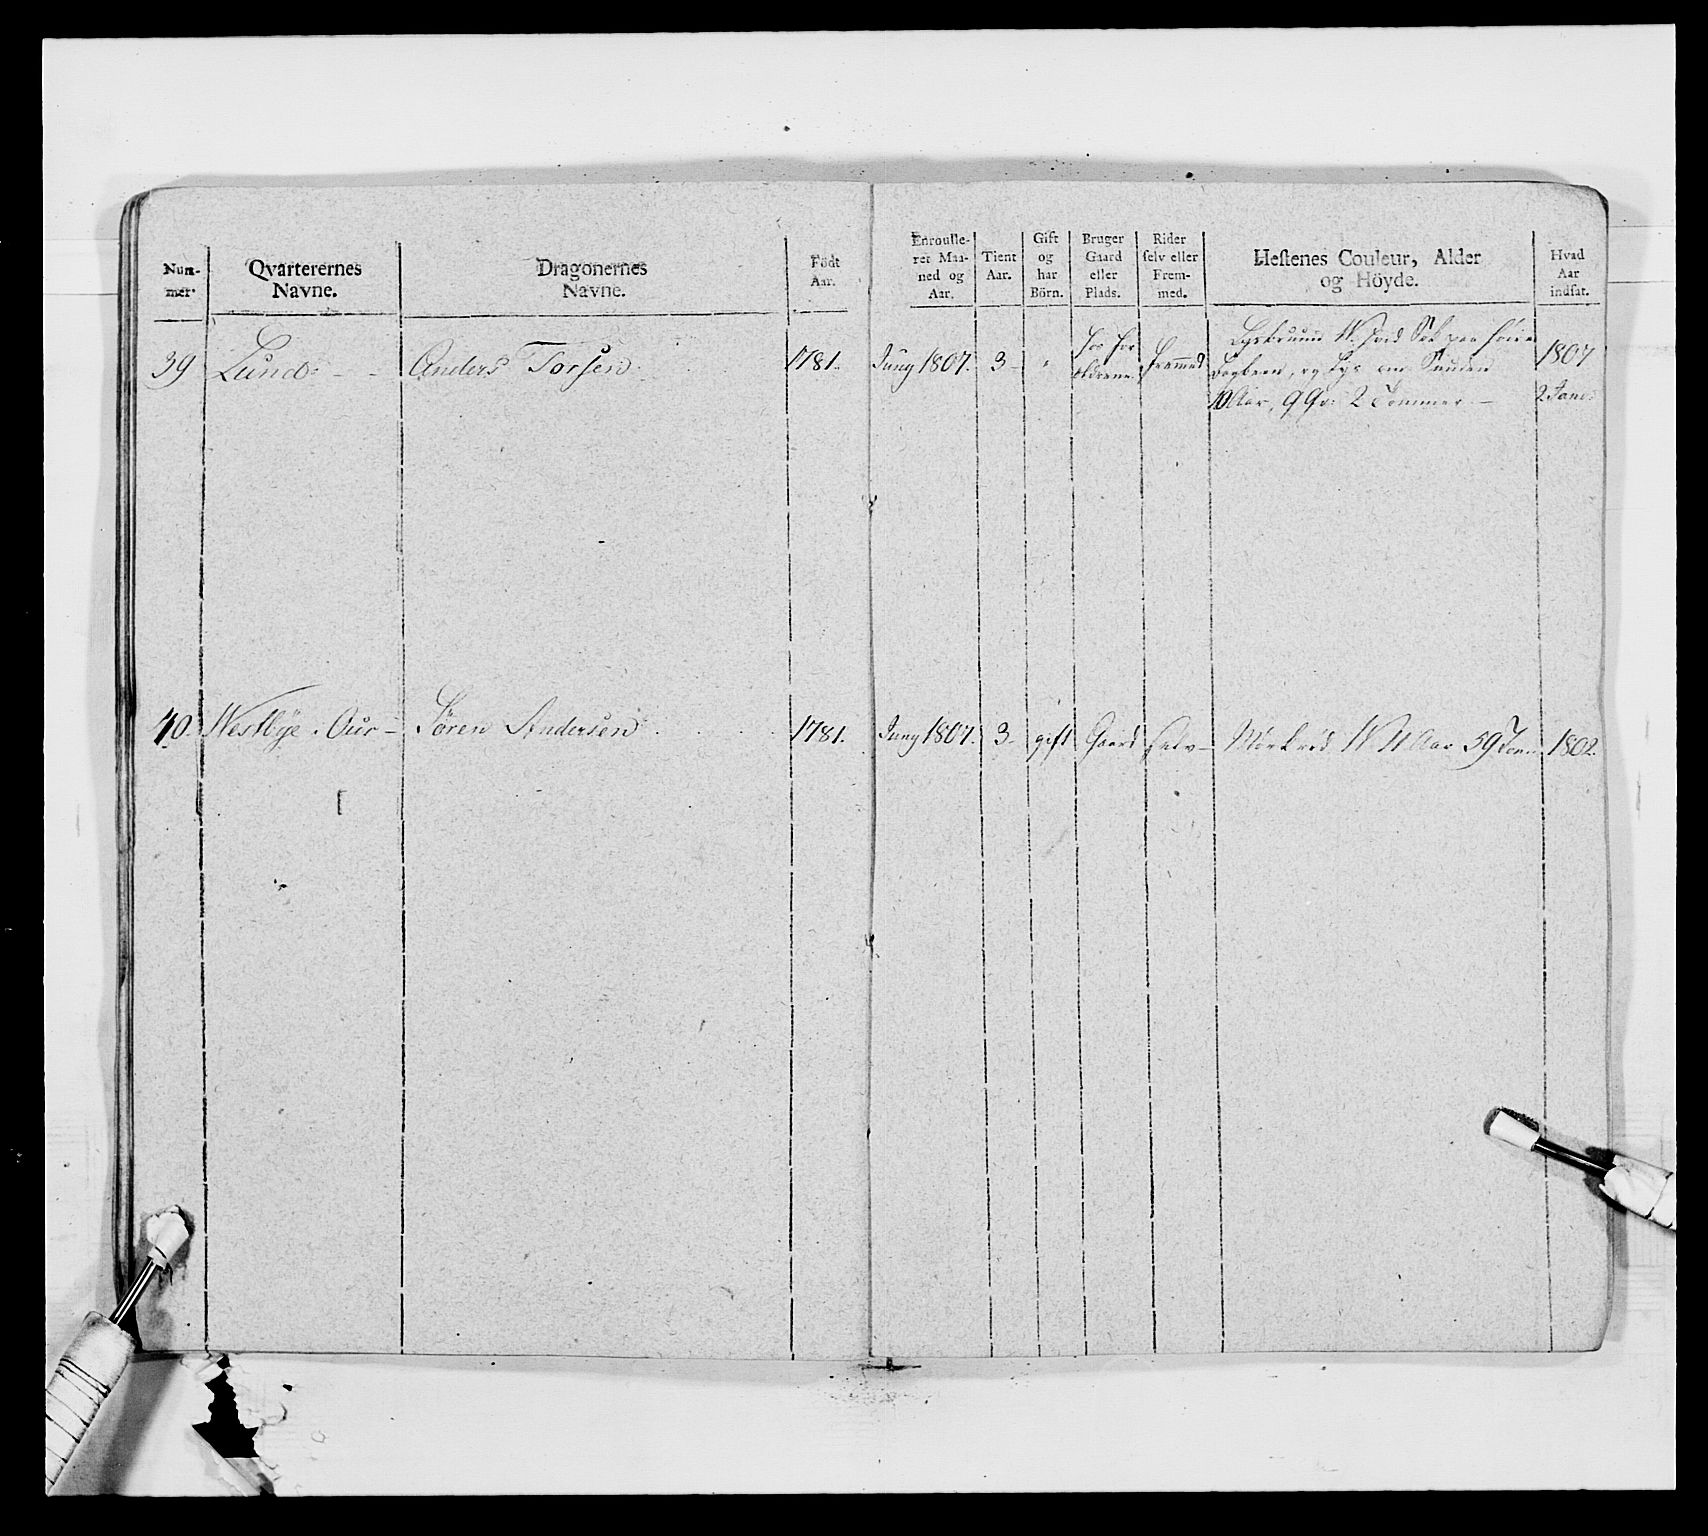 Num-
mer.
Qvarterernes
Navne.
Dragonernes
Navne.
Födt
Aar.
Enroulle-
ret Maa-
ned og
Aar.
Tient
Aar.
Gift
og
har
Börn.
Bruger
Gaard
eller
Plads.
Rider
selv eller
Frem-
med.
Hestenes Couleur, Alder
og Höyde.
Hvad
Aar
indsat.
39 Lund Anders Torsen 1781. Juny 1807. 3 " hos For
ældrene fremmed
Lysbruun W. hvid
Bagbeen, og Lys
10 Aar, 9 Qv: 2 Tommer
1807
2 Jan:
40. Westbye i Aur Sören Andersen 1781. Juny 1807. 3 gift Gaard selv Mörkröd W 11 Aar 59 Tom. 1802.